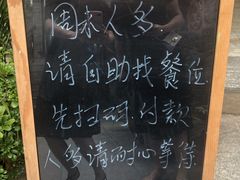 周末人多.
请自助找餐位
先扫码.付款
人多请耐心等候